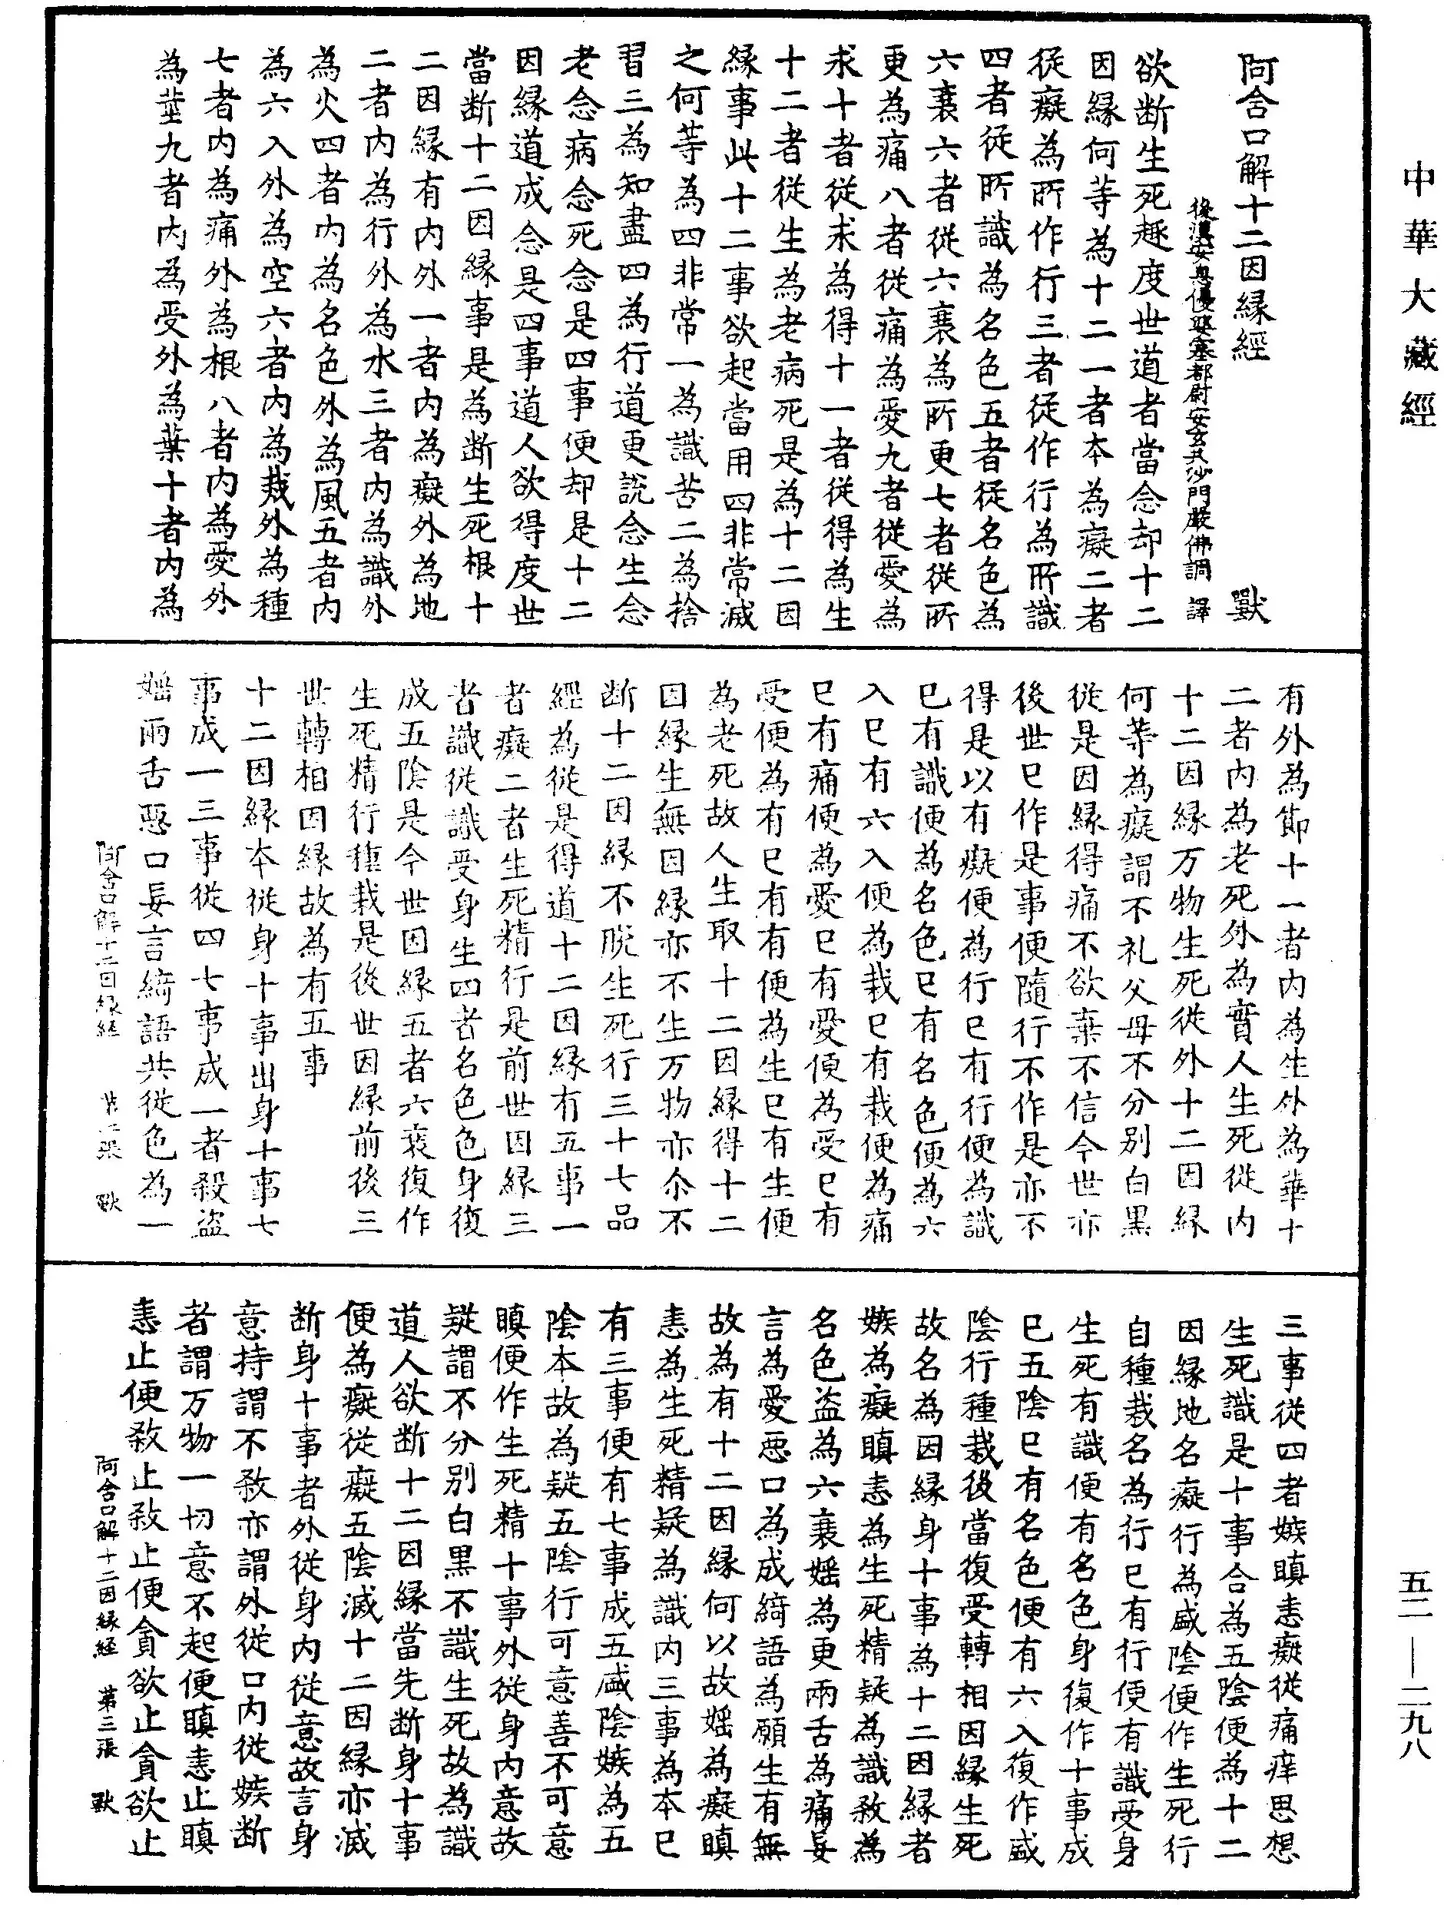 中華大藏經
阿含口解十二因緣經　獸
後漢安息優婆塞都尉安玄共沙門嚴佛調　譯
欲断生死趣度世道者當念却十二
因緣何等為十二一者本為癡二者
從癡為所作行三者從作行為所識
四者從所識為名色五者從名色為
六衰六者從六衰為所更七者從所
更為痛八者從痛為愛九者從愛為
求十者從求為得十一者從得為生
十二者從生為老病死是為十二因
緣事此十二事欲起當用四非常滅
之何等為四非常一為識苦二為捨
習三為知盡四為行道更說念生念
老念病念死念是四事便却是十二
因緣道成念是四事道人欲得度世
當断十二因緣事是為断生死根十
二因緣有内外一者内為癡外為地
二者内為行外為水三者内為識外
為火四者内為名色外為風五者内
為六入外為空六者内為栽外為種
七者内為痛外為根八者内為愛外
為莖九者内為受外為葉十者内為
有外為節十一者内為生外為華十
二者内為老死外為實人生死從内
十二因緣万物生死從外十二因緣
何等為癡謂不礼父母不分別白黑
從是因緣得痛不欲棄不信今世亦
後世已作是事便隨行不作是亦不
得是以有癡便為行已有行便為識
已有識便為名色已有名色便為六
入已有六入便為栽已有栽便為痛
已有痛便為愛已有愛便為受已有
受便為有已有有便為生已有生便
為老死故人生取十二因緣得十二
因緣生無因緣亦不生万物亦尒不
断十二因緣不脫生死行三十七品
經為從是得道十二因緣有五事一
者癡二者生死精行是前世因緣三
者識從識受身生四者名色色身復
成五陰是今世因緣五者六衰復作
生死精行種栽是後世因緣前後三
世轉相因緣故為有五事
十二因緣本從身十事出身十事七
事成一三事從四七事成一者殺盜
婬兩舌惡口妄言綺語共從色為一
阿含口解十二因緣經　第二張　獸
三事從四者嫉瞋恚癡從痛痒思想
生死識是十事合為五陰便為十二
因緣地名癡行為盛陰便作生死行
自種栽名為行已有行便有識受身
生死有識便有名色身復作十事成
已五陰已有名色便有六入復作盛
陰行種栽後當復受轉相因緣生死
故名為因緣身十事為十二因緣者
嫉為癡瞋恚為生死精疑為識殺為
名色盜為六衰婬為更兩舌為痛妄
言為愛惡口為成綺語為願生有無
故為有十二因緣何以故婬為癡瞋
恚為生死精疑為識内三事為本已
有三事便有七事成五盛陰嫉為五
陰本故為疑五陰行可意善不可意
瞋便作生死精十事外從身内意故
疑謂不分別白黑不識生死故為識
道人欲断十二因緣當先断身十事
便為癡從癡五陰滅十二因緣亦滅
断身十事者外從身内從意故言身
意持謂不殺亦謂外從口内從嫉断
者謂万物一切意不起便瞋恚止瞋
恚止便殺止殺止便貪欲止貪欲止
阿含口解十二因緣經　第三張　獸
五二—二九八